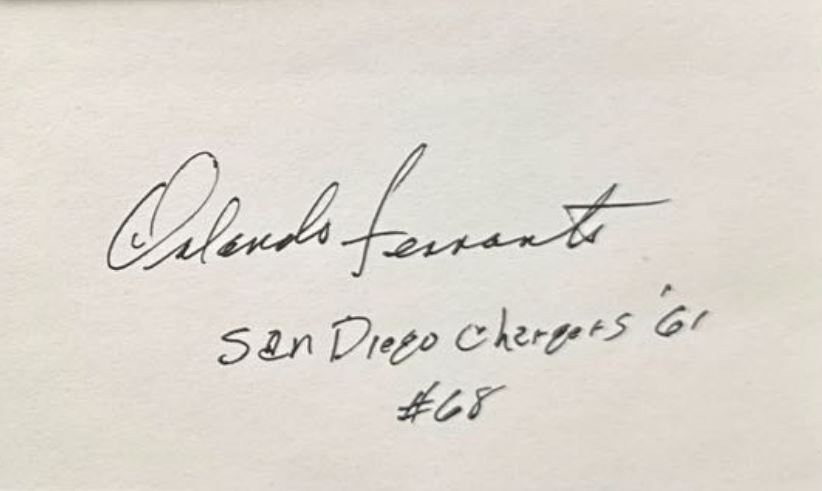 Orlando Ferrante
San Diego Chargers '61
#68